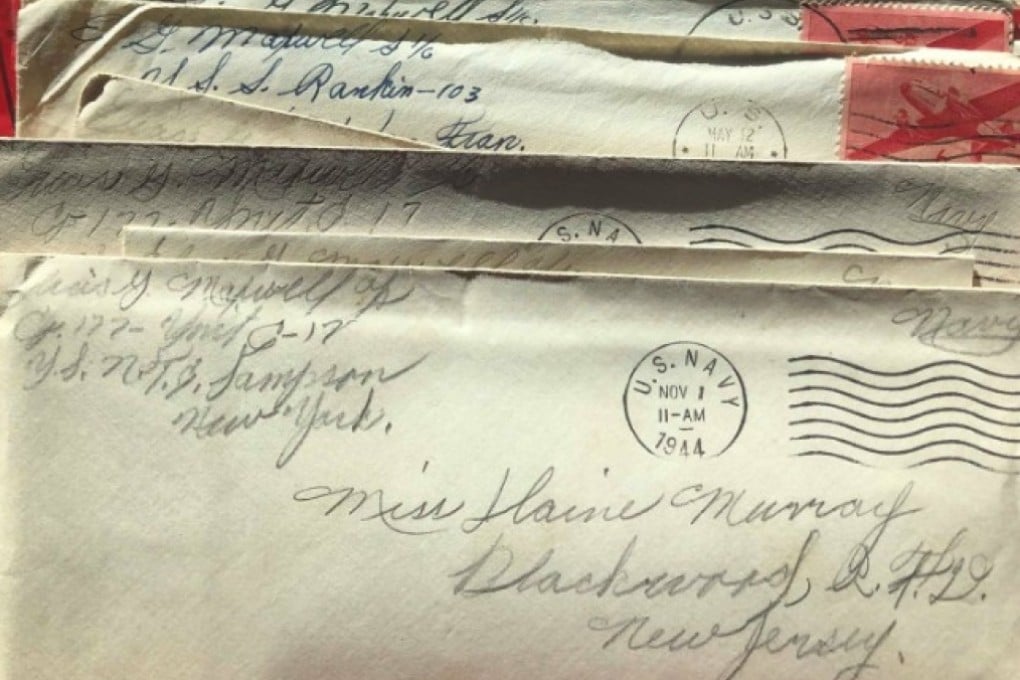 G. Maxwell S 1/c.
U. S.
G. Maxwell S 1/c
U. S. S. Rankin-103
Fran.
U. S.
MAY 12
11 AM
G. Maxwell
Co. 177- Unit
17
S. NA
Navy
G. Maxwell
Co. 177- Unit
-17
U.S. N.T.S. Sampson
New York.
Navy
U. S. NAVY
NOV 1
11-AM
1944
Miss Elaine Murray
Blackwood, R.F.D.
New Jersey.